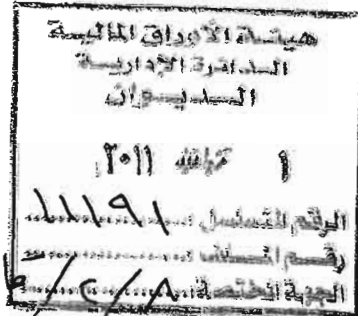 هيئة الأوراق المالية
الدائرة الإدارية
الديوان
٢٠١١
الرقم المتسلسل ١١١٩١
رقم الملف
الجهة المختصة